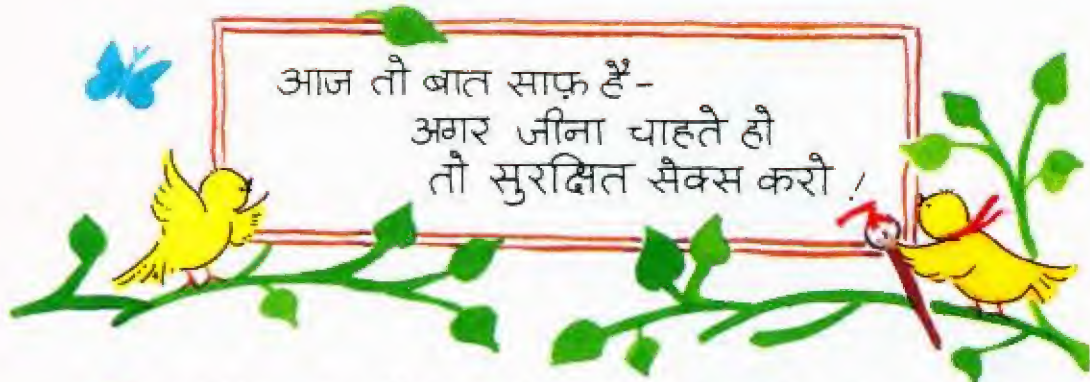 आज तो बात साफ़ है-
अगर जीना चाहते हो
तो सुरक्षित सेक्स करो !